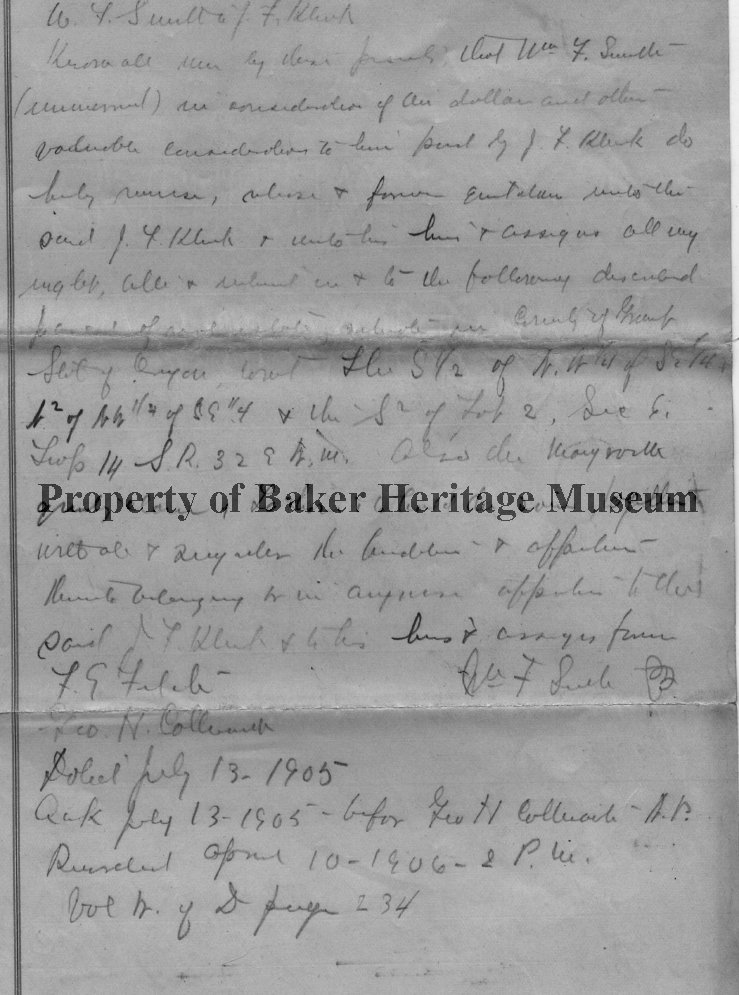 W. F. Smith to J. F. Kluk
Know all men by these presents, that Wm F. Smith
(unmarried) in consideration of one dollar and other
valuable consideration to him paid by J. F. Kluk do
hereby remise, release & forever quitclaim unto the
said J. F. Kluk & unto his heirs & assigns all my
right, title & interest in & to the following described
parcel of real estate, situate in County of Grant
State of Oregon, towit The S 1/2 of N.W 1/4 of SE 1/4 &
N2 of 1/4 of SE 1/4 & the S2 of Lot 2, Sec 6.
Twp 14 S.R. 32 E W.M. Also the Marysville
Property of Baker Heritage Museum
with all & singular the & appurten
thereto belonging or in anywise appertain to the
said J. F. Kluk & to his heirs & assigns forever
F. E.
Wm F Smith
Geo. H.
Dated July 13-1905
Ack July 13-1905- before Geo H N.P.
Recorded April 10-1906-2 P.M.
Vol W. of D page 234